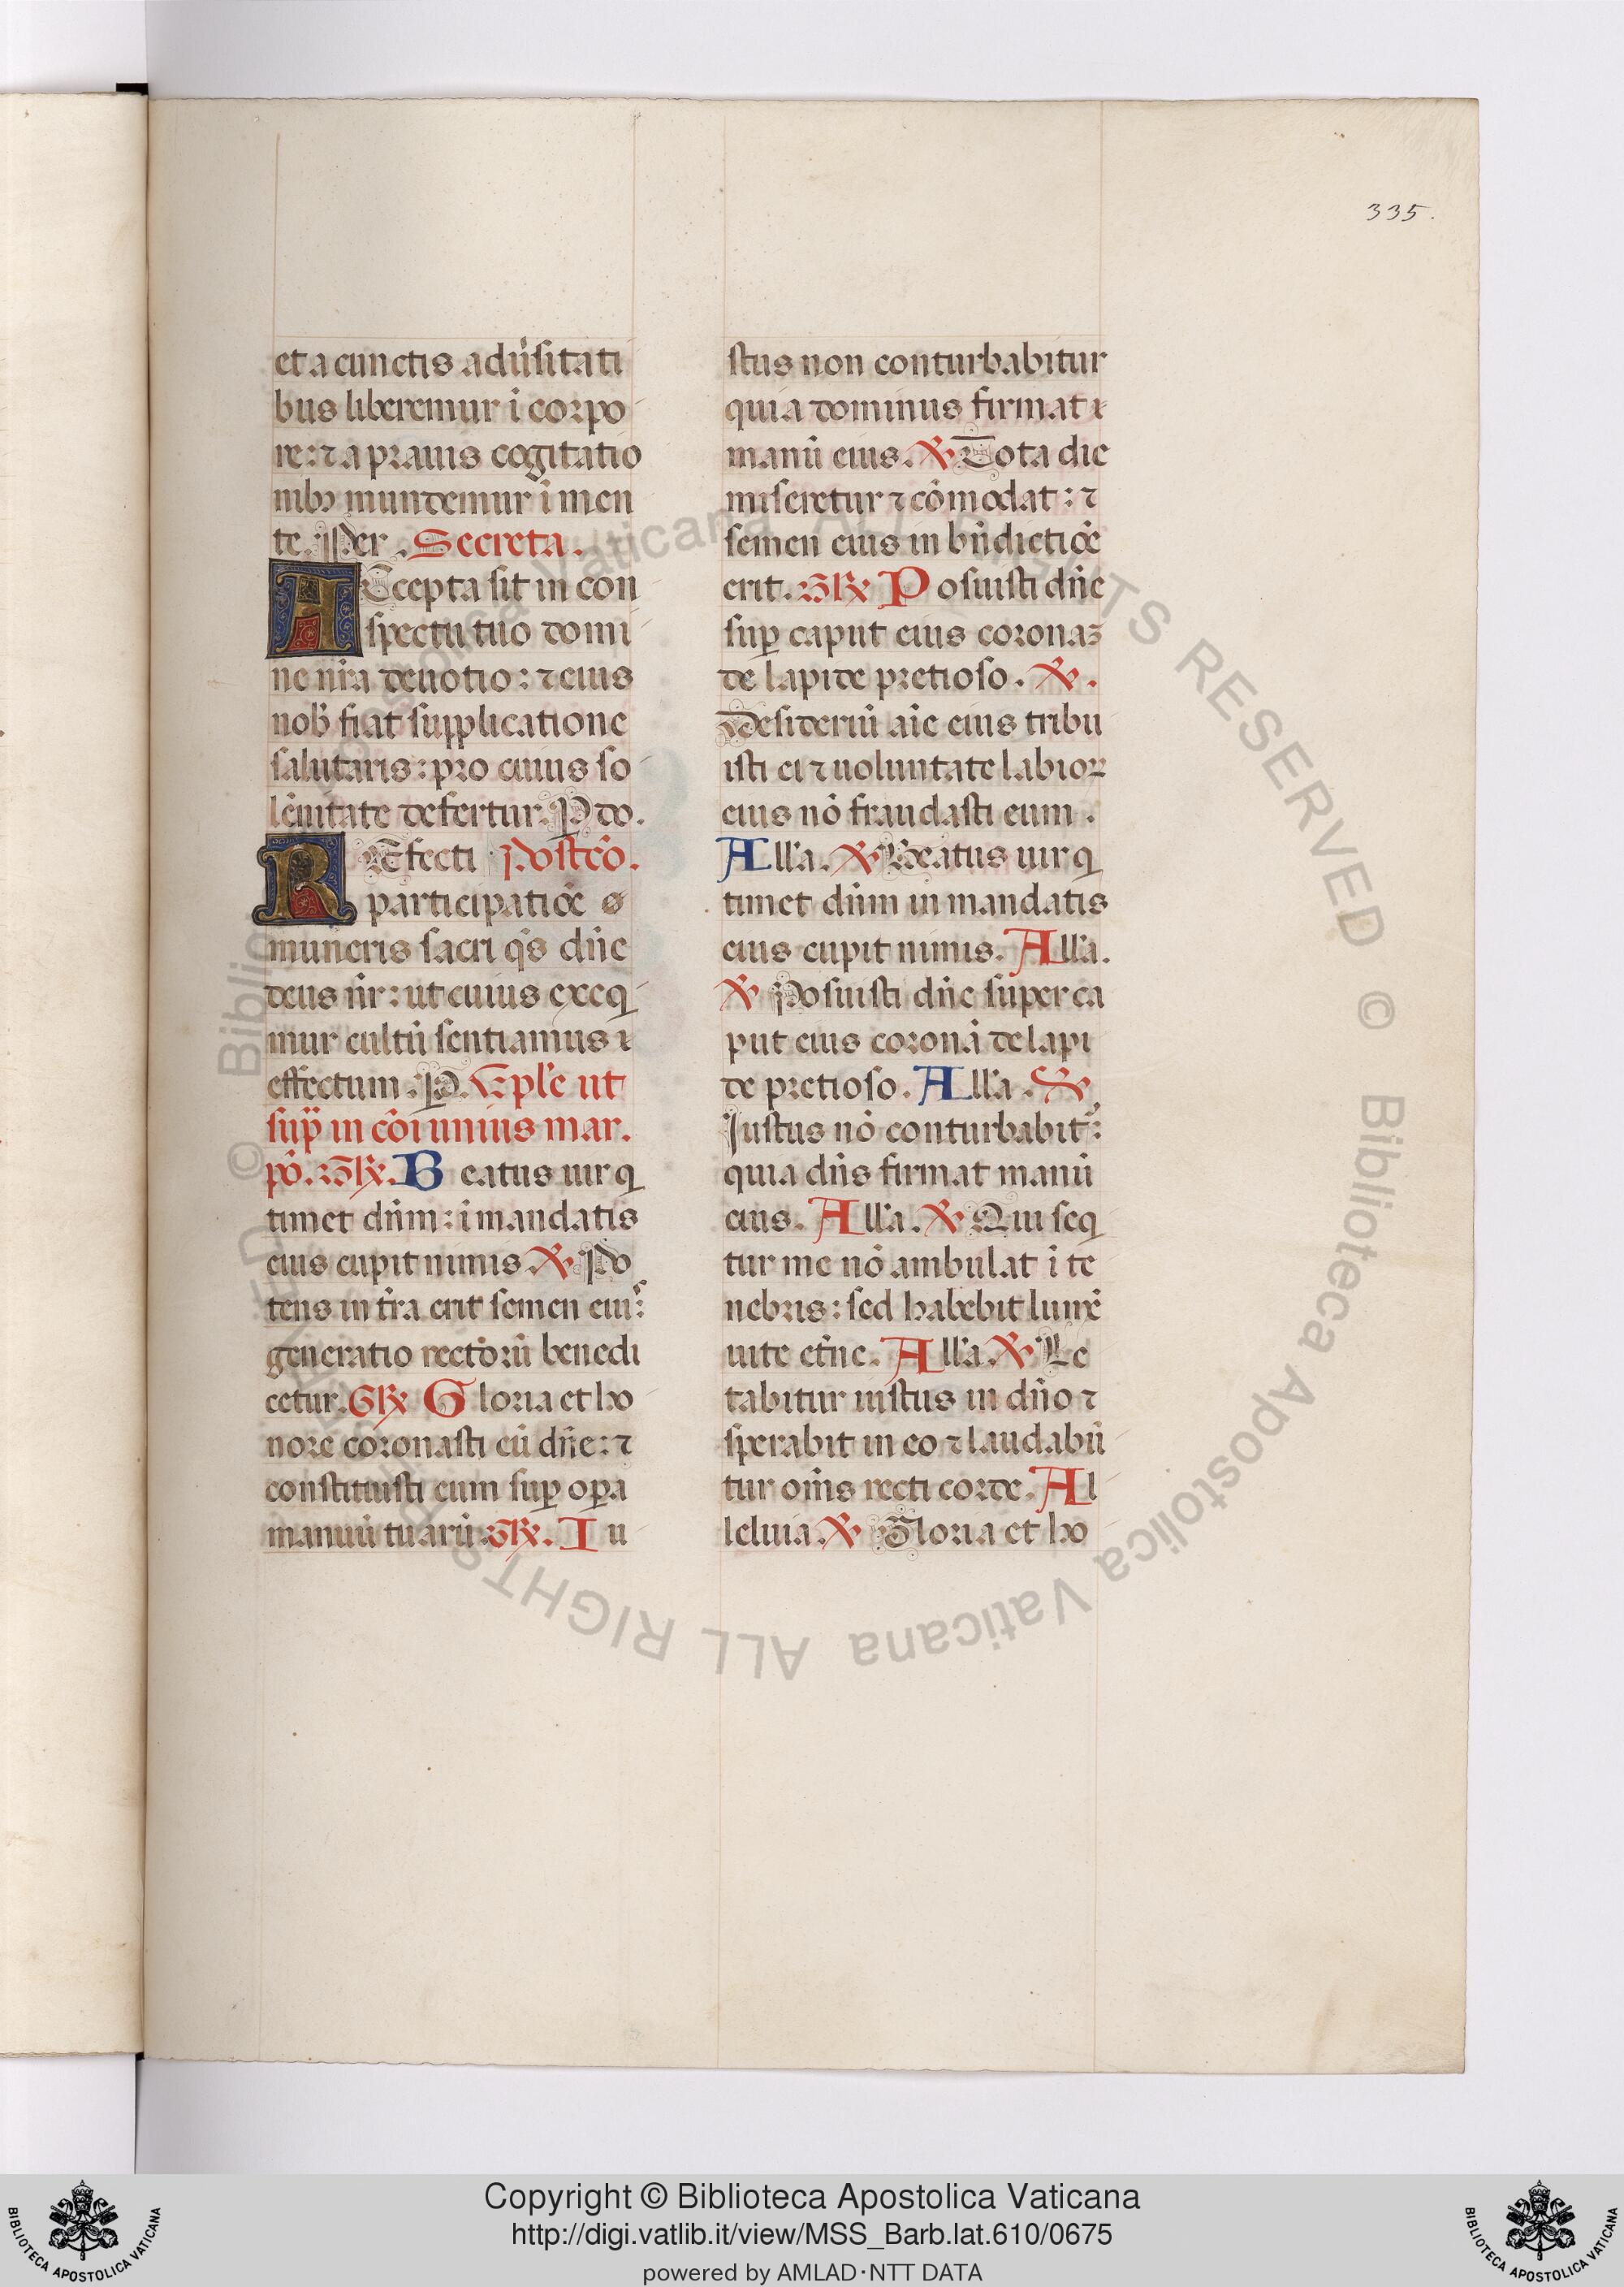 335.
et a cunctis adũsitati
bus liberemur ĩ corpo
re: ⁊ a prauis cogitatio
nibꝫ mundemur ĩ men
te. Per. Secreta.
ACcepta sit in con
spectu tuo domi
ne nr̃a deuotio: ⁊ eius
nob̃ fiat supplicatione
salutaris: pro cuius so
lẽnitate defertur. P do.
REfecti Postcõ.
participatiõe
muneris sacri q̃s dñe
deus nr̃: ut cuius exeq
mur cultũ sentiamus ⁊
effectum. P. Eple ut
sup̃ in cõi unius mar.
põ. Gꝶ. Beatus uir q
timet dñm: ĩ mandatis
eius cupit nimis. ℣ Po
tens in tr̃a erit semen eiuˢ:
generatio rectorũ benedi
cetur. Gꝶ Gloria et ho
nore coronasti eũ dñe: ⁊
constituisti eum suꝑ oꝑa
manuũ tuarũ. Gꝶ. Iu
stus non conturbabitur
quia dominus firmat ⁊
manũ eius. ℣ Tota die
miseretur ⁊ cõmodat: ⁊
semen eius in bñdictiõe
erit. Gꝶ Posuisti dñe
suꝑ caput eius coronaꝫ
de lapide pretioso. ℣.
Desideriũ aĩe eius tribu
isti ei ⁊ uoluntate labioꝝ
eius nõ fraudasti eum.
All̃a. ℣ Beatus uir q
timet dñm in mandatis
eius cupit nimis. All̃a.
℣ Posuisti dñe super ca
put eius coronã de lapi
de pretioso. All̃a. ℣
Justus nõ conturbabit᷑:
quia dñs firmat manũ
eius. All̃a. ℣ Qui seq
tur me nõ ambulat ĩ te
nebris: sed habebit lumẽ
uite etñe. All̃a. ℣ Le
tabitur iustus in dño ⁊
sperabit in eo ⁊ laudabũ
tur om̃s recti corde. Al
leluia. ℣ Gloria et ho
© Biblioteca Apostolica Vaticana ALL RIGHTS RESERVED © Biblioteca Apostolica Vaticana ALL RIGHTS RESERVED
BIBLIOTECA APOSTOLICA VATICANA
Copyright © Biblioteca Apostolica Vaticana
http://digi.vatlib.it/view/MSS_Barb.lat.610/0675
powered by AMLAD·NTT DATA
BIBLIOTECA APOSTOLICA VATICANA